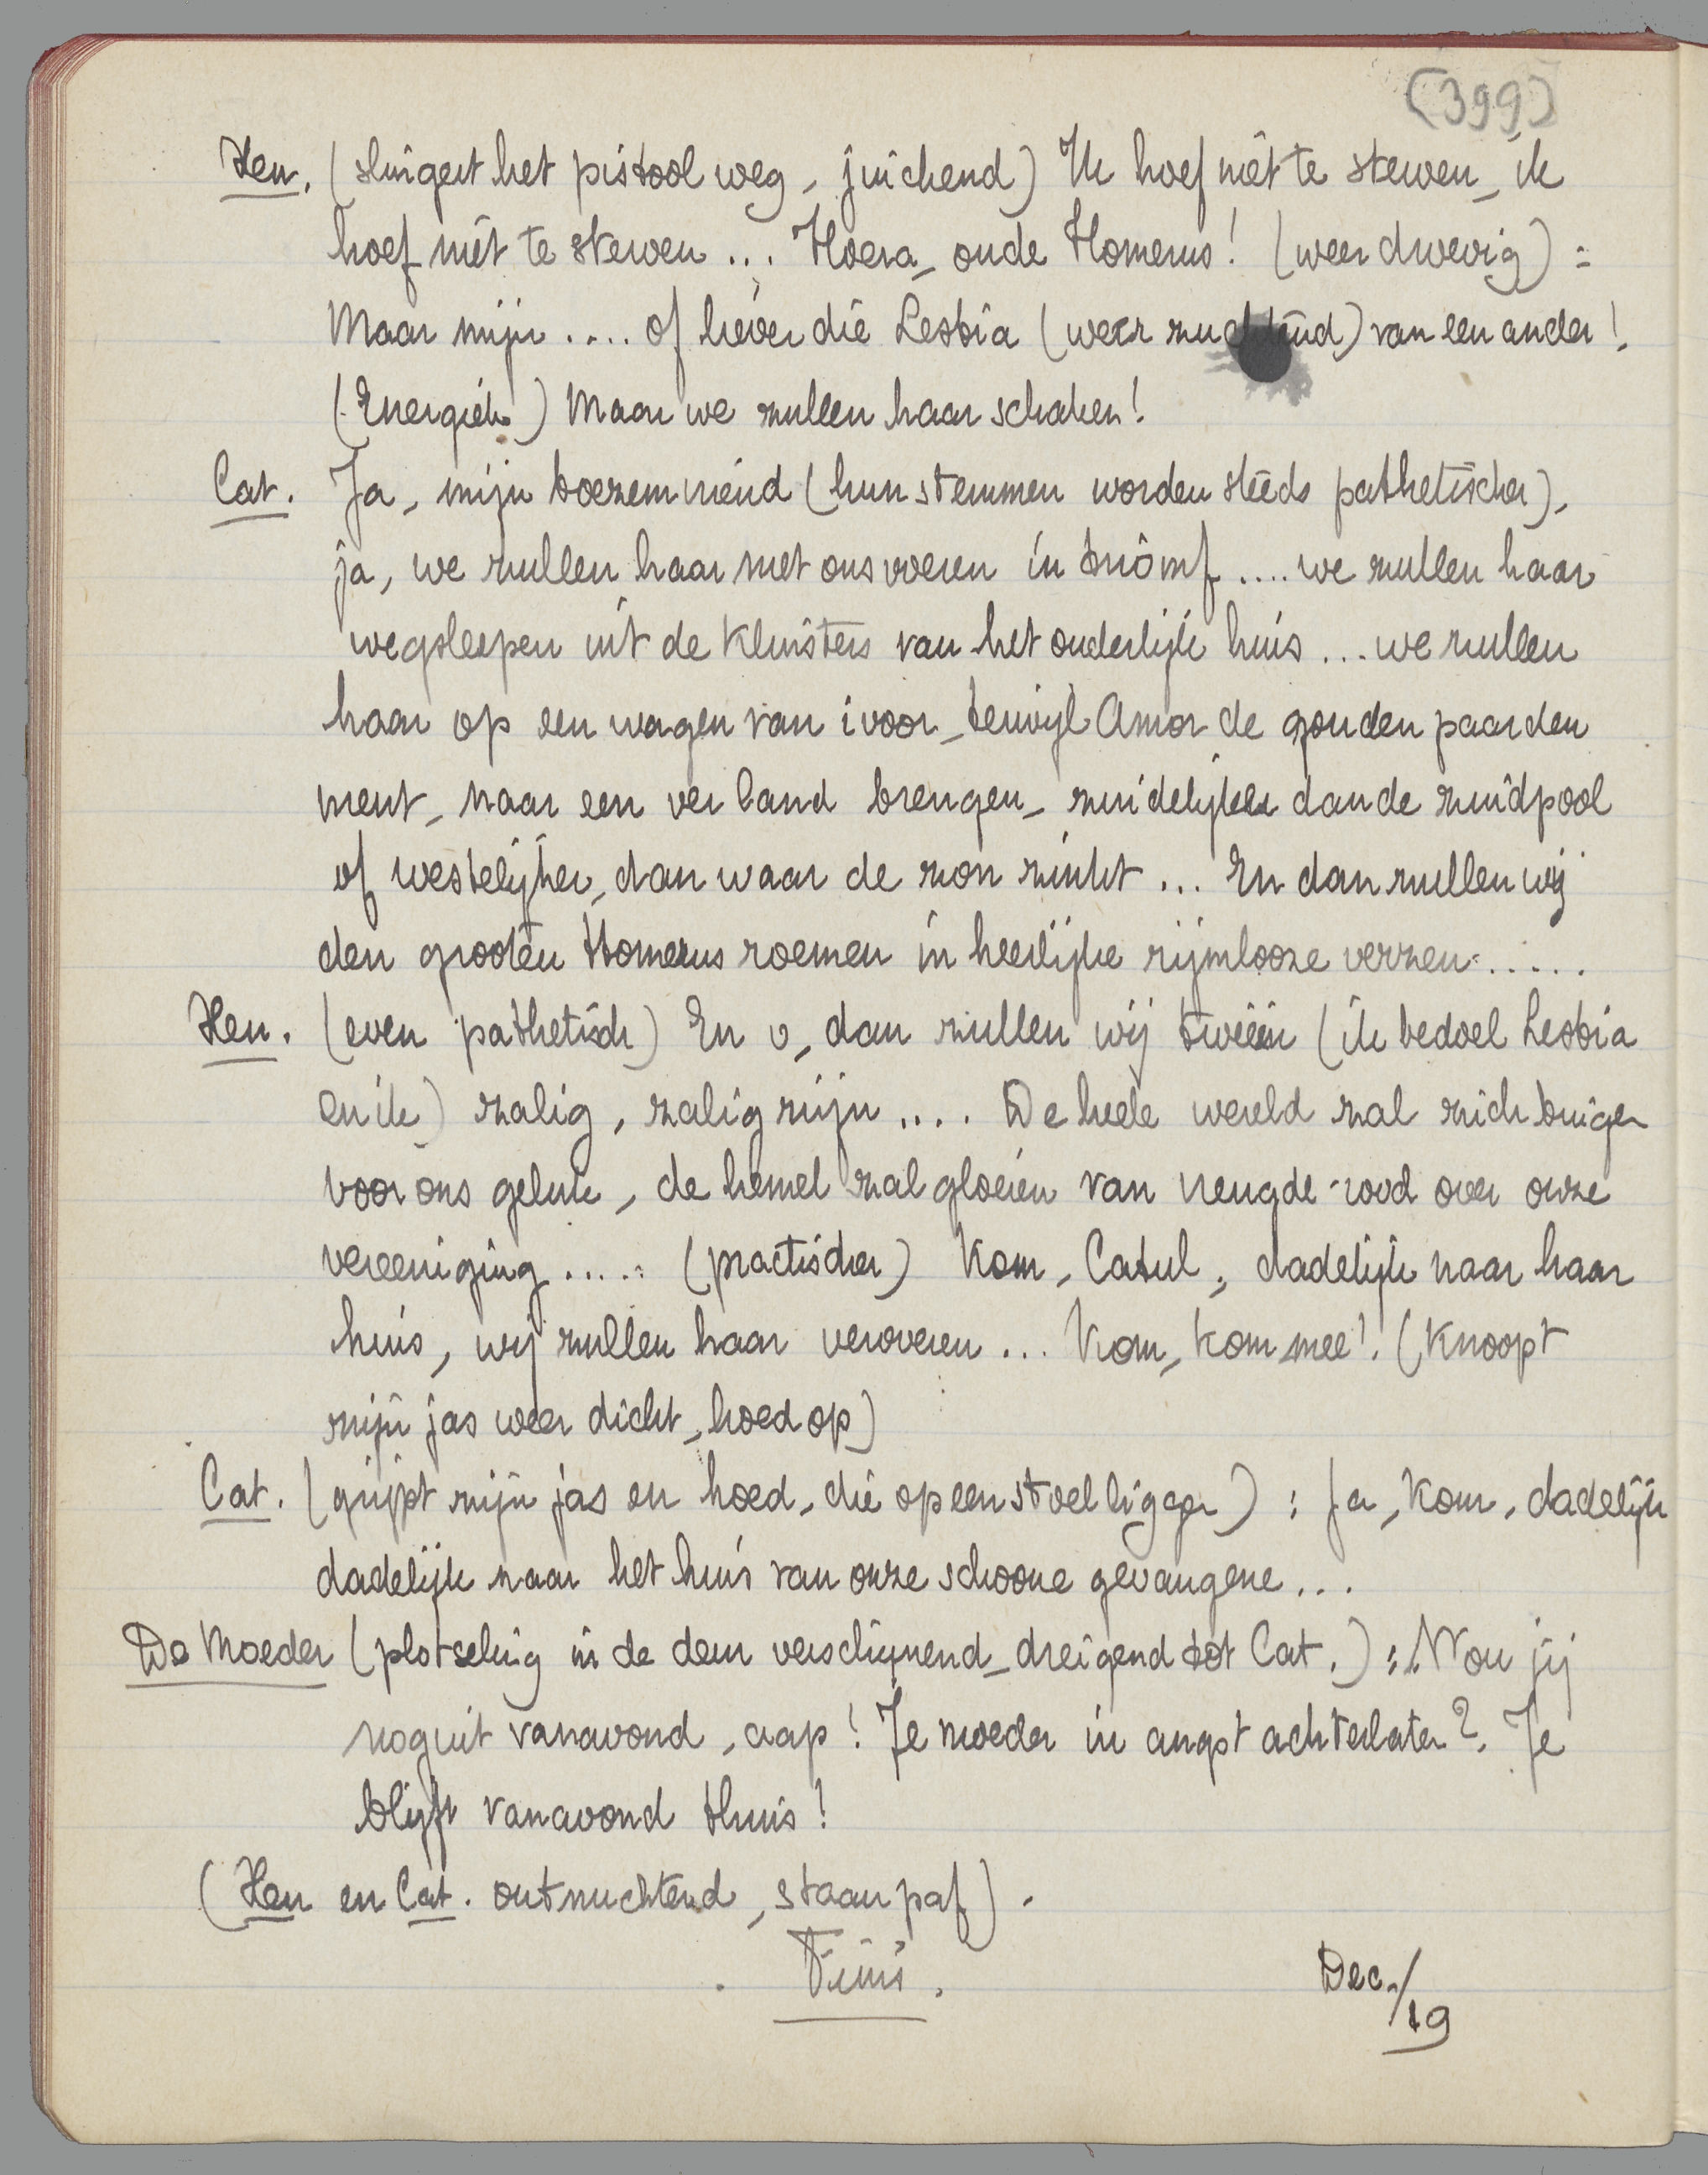 (399)
Hen. (slingert het pistool weg, juichend) Ik hoef niet te sterven, ik
hoef niet te sterven ... Hoera, oude Homerus! (weer droevig) :
Maar mijn .... of liever die Lesbia (weer zuchtend) van een ander!
(Energiek) Maar we zullen haar schaken!
Cat. Ja, mijn boezemvriend (hun stemmen worden steeds pathetischer),
ja, we zullen haar met ons voeren in triomf .... we zullen haar
wegsleepen uit de kluisters van het ouderlijk huis ... we zullen
haar op een wagen van ivoor, terwijl Amor de gouden paarden
ment, naar een ver land brengen, zuidelijker dan de zuidpool
of westelijker, dan waar de zon zinkt ... En dan zullen wij
den grooten Homerus roemen in heerlijke rijmlooze verzen .....
Hen. (even pathetisch) En o, dan zullen wij tweeën (ik bedoel Lesbia
en ik) zalig, zalig zijn .... De heele wereld zal zich buigen
voor ons geluk, de hemel zal gloeien van vreugde-rood over onze
vereeniging ..... (practischer) Kom, Catul, dadelijk naar haar
huis, wij zullen haar veroveren ... Kom, kom mee! (Knoopt
zijn jas weer dicht, hoed op)
Cat. (grijpt zijn jas en hoed, die op een stoel liggen) : Ja, kom, dadelijk
dadelijk naar het huis van onze schoone gevangene ...
De Moeder (plotseling in de deur verschijnend, dreigend tot Cat.) : Wou jij
nog uit vanavond, aap! Je moeder in angst achterlaten? Je
blijft vanavond thuis!
(Hen en Cat. ontnuchterd, staan paf).
Finis.
Dec./19